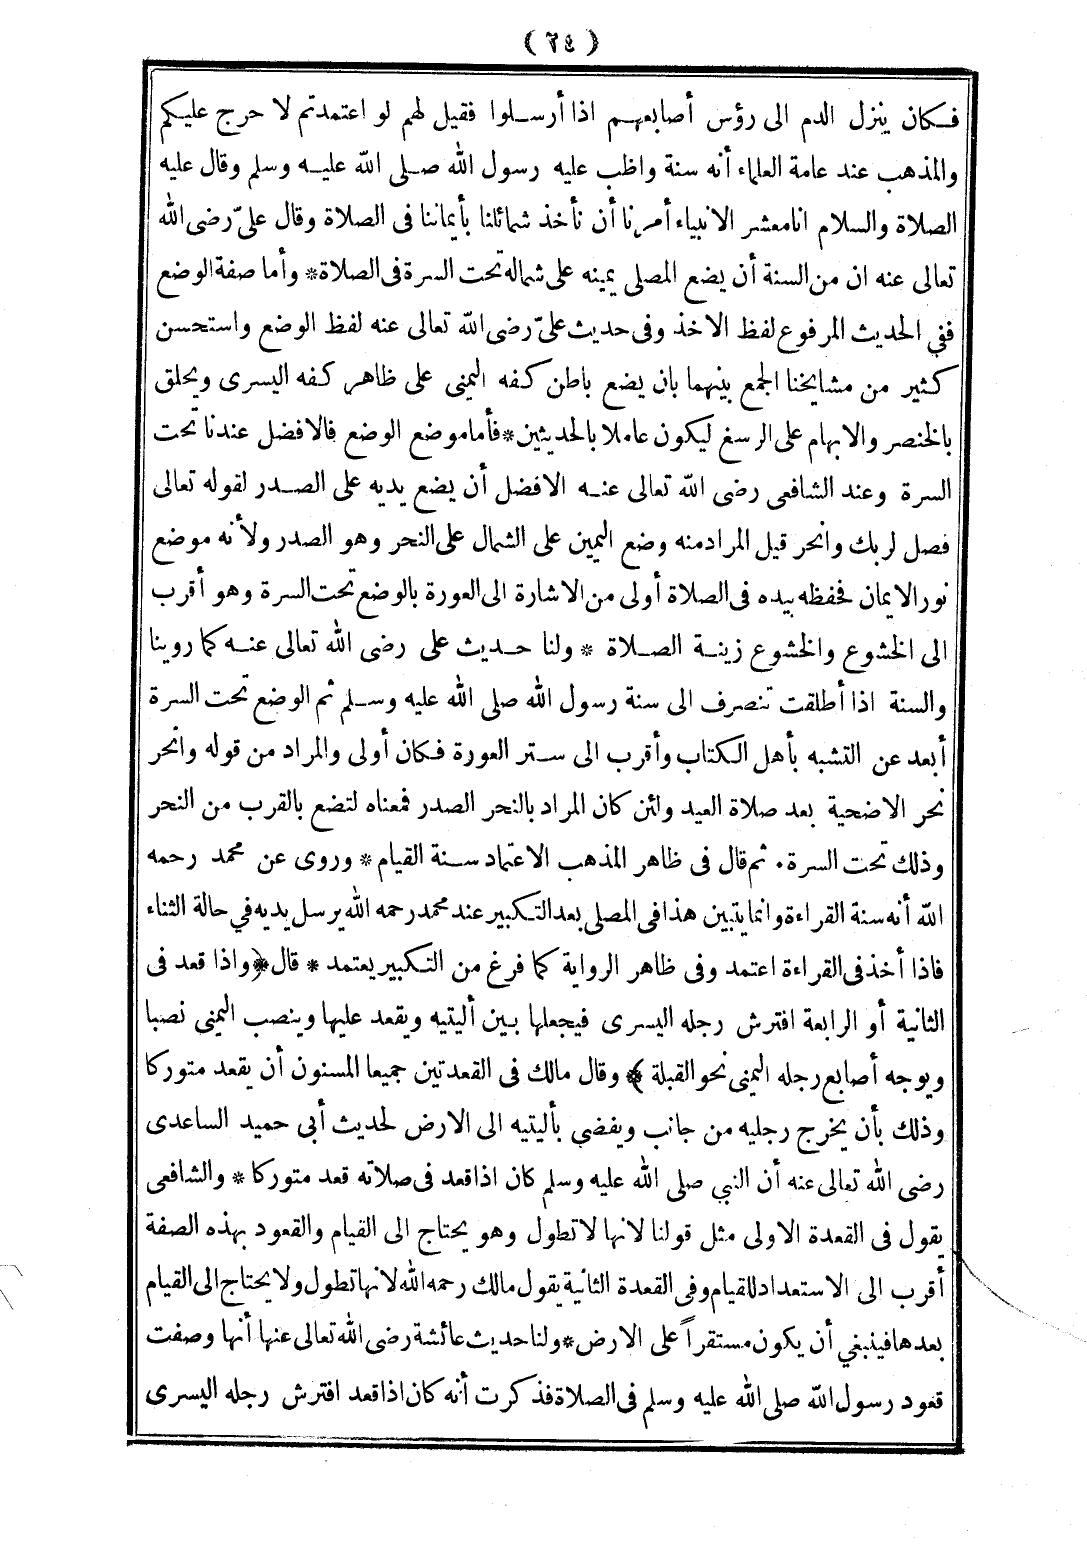 ( ٢٤ )
فكان ينزل الدم الى رؤس أصابعهم اذا أرسلوا فقيل لهم لو اعتمدتم لا حرج عليكم
والمذهب عند عامة العلماء أنه سنة واظب عليه رسول الله صلى الله عليه وسلم وقال عليه
الصلاة والسلام انا معشر الانبياء أمرنا أن نأخذ شمائلنا بأيماننا فى الصلاة وقال علىّ رضى الله
تعالى عنه ان من السنة أن يضع المصلى يمينه على شماله تحت السرة فى الصلاة * وأما صفة الوضع
ففي الحديث المرفوع لفظ الاخذ وفى حديث علىّ رضى الله تعالى عنه لفظ الوضع واستحسن
كثير من مشايخنا الجمع بينهما بان يضع باطن كفه اليمنى على ظاهر كفه اليسرى ويحلق
بالخنصر والابهام على الرسغ ليكون عاملا بالحديثين * فأما موضع الوضع فالافضل عندنا تحت
السرة وعند الشافعى رضى الله تعالى عنه الافضل أن يضع يديه على الصدر لقوله تعالى
فصل لربك وانحر قيل المراد منه وضع اليمين على الشمال على النحر وهو الصدر ولأنه موضع
نور الايمان فحفظه بيده فى الصلاة أولى من الاشارة الى العورة بالوضع تحت السرة وهو أقرب
الى الخشوع والخشوع زينة الصلاة * ولنا حديث على رضى الله تعالى عنه كما روينا
والسنة اذا أطلقت تنصرف الى سنة رسول الله صلى الله عليه وسلم ثم الوضع تحت السرة
أبعد عن التشبه بأهل الكتاب وأقرب الى ستر العورة فكان أولى والمراد من قوله وانحر
نحر الاضحية بعد صلاة العيد ولئن كان المراد بالنحر الصدر فمعناه لتضع بالقرب من النحر
وذلك تحت السرة . ثم قال فى ظاهر المذهب الاعتماد سنة القيام * وروى عن محمد رحمه
الله أنه سنة القراءة وانما يتبين هذا فى المصلى بعد التكبير عند محمد رحمه الله يرسل يديه في حالة الثناء
فاذا أخذ فى القراءة اعتمد وفى ظاهر الرواية كما فرغ من التكبير يعتمد * قال ﴿ واذا قعد فى
الثانية أو الرابعة افترش رجله اليسرى فيجعلها بين أليتيه ويقعد عليها وينصب اليمنى نصبا
ويوجه أصابع رجله اليمنى نحو القبلة ﴾ وقال مالك فى القعدتين جميعا المسنون أن يقعد متوركا
وذلك بأن يخرج رجليه من جانب ويفضي بأليتيه الى الارض لحديث أبى حميد الساعدى
رضى الله تعالى عنه أن النبي صلى الله عليه وسلم كان اذا قعد فى صلاته قعد متوركا * والشافعى
يقول فى القعدة الاولى مثل قولنا لانها لا تطول وهو يحتاج الى القيام والقعود بهذه الصفة
أقرب الى الاستعداد للقيام وفى القعدة الثانية يقول مالك رحمه الله لانها تطول ولا يحتاج الى القيام
بعدها فينبغي أن يكون مستقراً على الارض * ولنا حديث عائشة رضى الله تعالى عنها أنها وصفت
قعود رسول الله صلى الله عليه وسلم فى الصلاة فذكرت أنه كان اذا قعد افترش رجله اليسرى